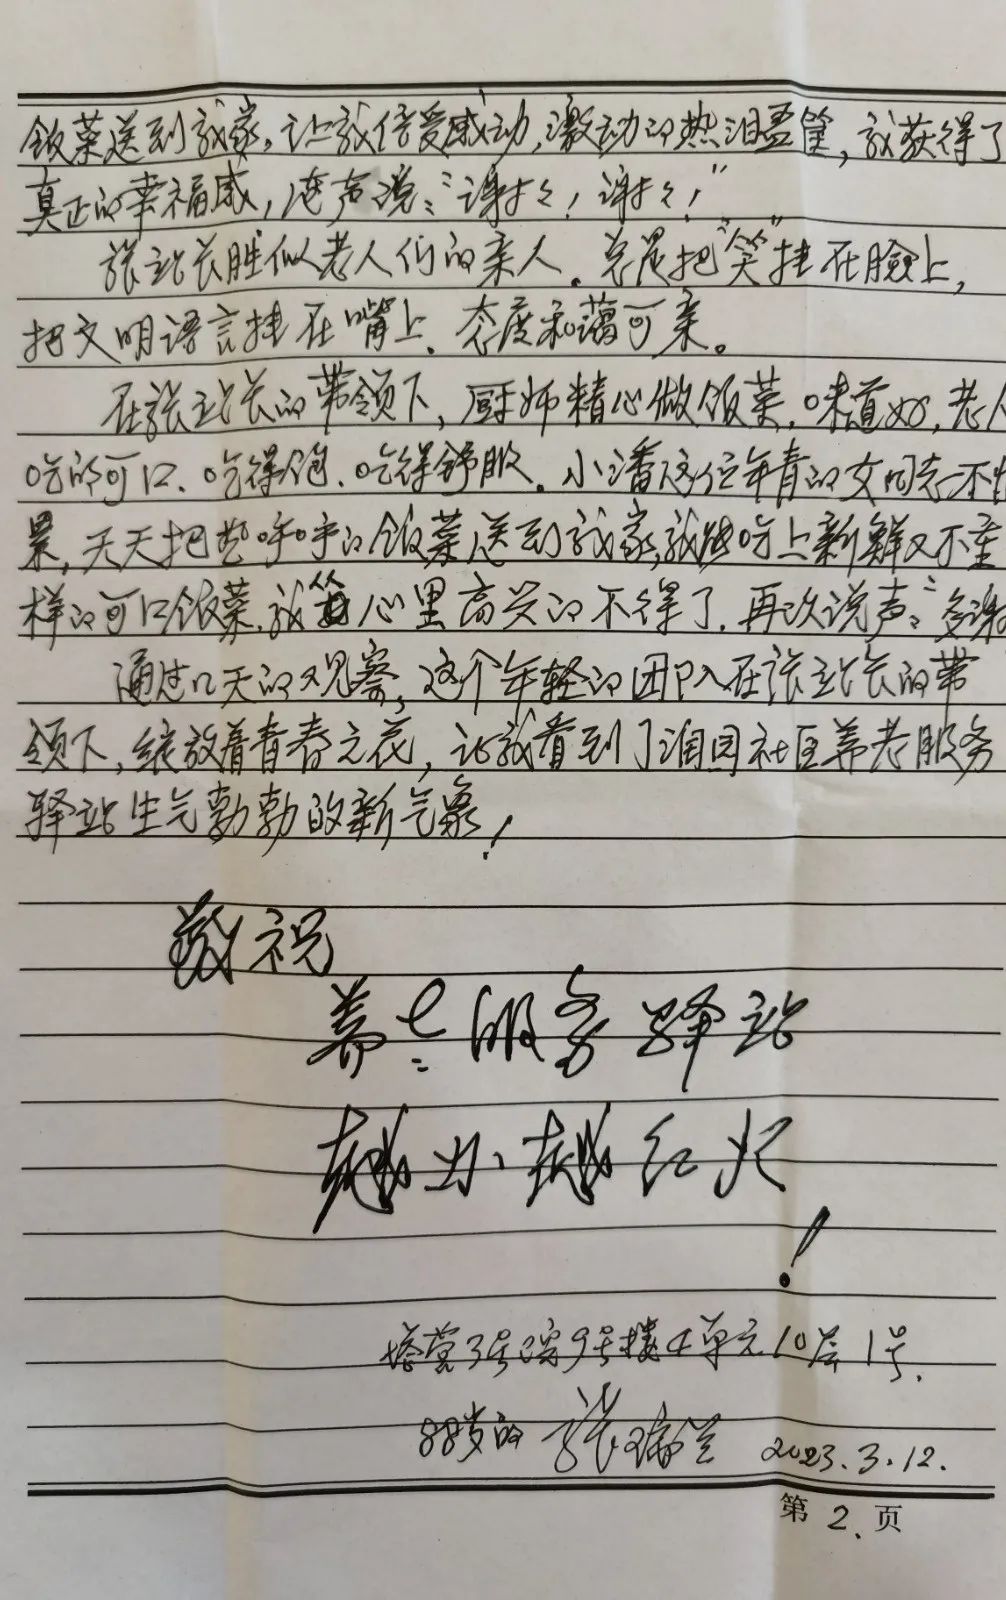 饭菜送到我家,让我倍受感动,激动的热泪盈筐,我获得了
真正的幸福感,连声说:“谢谢!谢谢!”
张站长胜似老人们的亲人。总是把“笑”挂在脸上,
把文明语言挂在嘴上、态度和蔼可亲。
在张站长的带领下,厨师精心做饭菜,味道好,老人
吃的可口、吃得饱、吃得舒服。小潘这位年青的女同志不怕
累,天天把热呼呼的饭菜送到我家,我能吃上新鲜又不重
样的可口饭菜,我心里高兴的不得了,再次说声:多谢
通过几天的观察,这个年轻的团队在张站长的带
领下,绽放着青春之花,让我看到了润园社区养老服务
驿站生气勃勃的新气象!
敬祝
养老服务驿站
越办越红火
!
塔营3号院9号楼4单元10层1号.
88岁的 张兰 2023.3.12.
第2.页